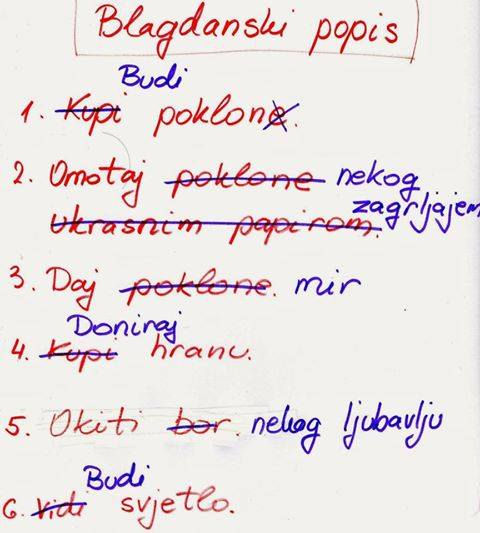 Blagdanski popis
Budi
1. Kupi poklone.
2. Omotaj poklone nekog
zagrljajem
ukrasnim papirom.
3. Daj poklone. mir
Doniraj
4. Kupi hranu.
5. Okiti bor. nekog ljubavlju
Budi
6. Vidi svjetlo.